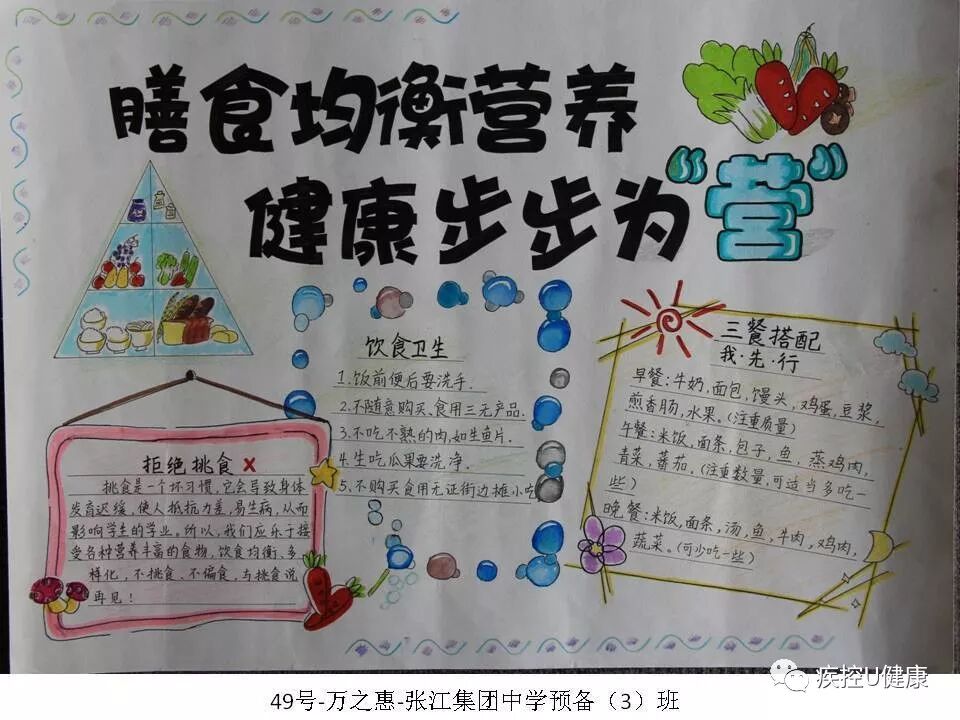 膳食均衡营养
健康步步为“营”
饮食卫生
1.饭前便后要洗手.
2.不随意购买、食用三无产品.
3.不吃不熟的肉,如生鱼片.
4.生吃瓜果要洗净.
5.不购买食用无证街边摊小吃
三餐搭配
我·先·行
早餐:牛奶,面包,馒头,鸡蛋,豆浆,
煎香肠,水果。(注重质量)
午餐:米饭,面条,包子,鱼,蒸鸡肉,
青菜,蕃茄。(注重数量,可适当多吃一
些)
晚餐:米饭,面条,汤,鱼,牛肉,鸡肉,
蔬菜。(可少吃一些)
拒绝挑食 X
挑食是一个坏习惯,它会导致身体
发育迟缓,使人抵抗力差,易生病,从而
影响学生的学业。所以,我们应乐于接
受各种营养丰富的食物,饮食均衡、多
样化,不挑食,不偏食,与挑食说
再见!
疾控U健康
49号-万之惠-张江集团中学预备（3）班